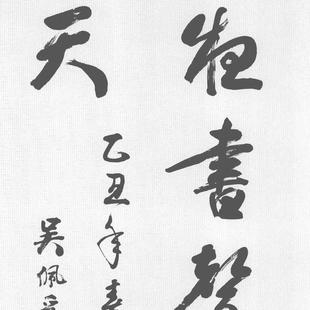 夜書聲
天
乙丑年春
吴佩